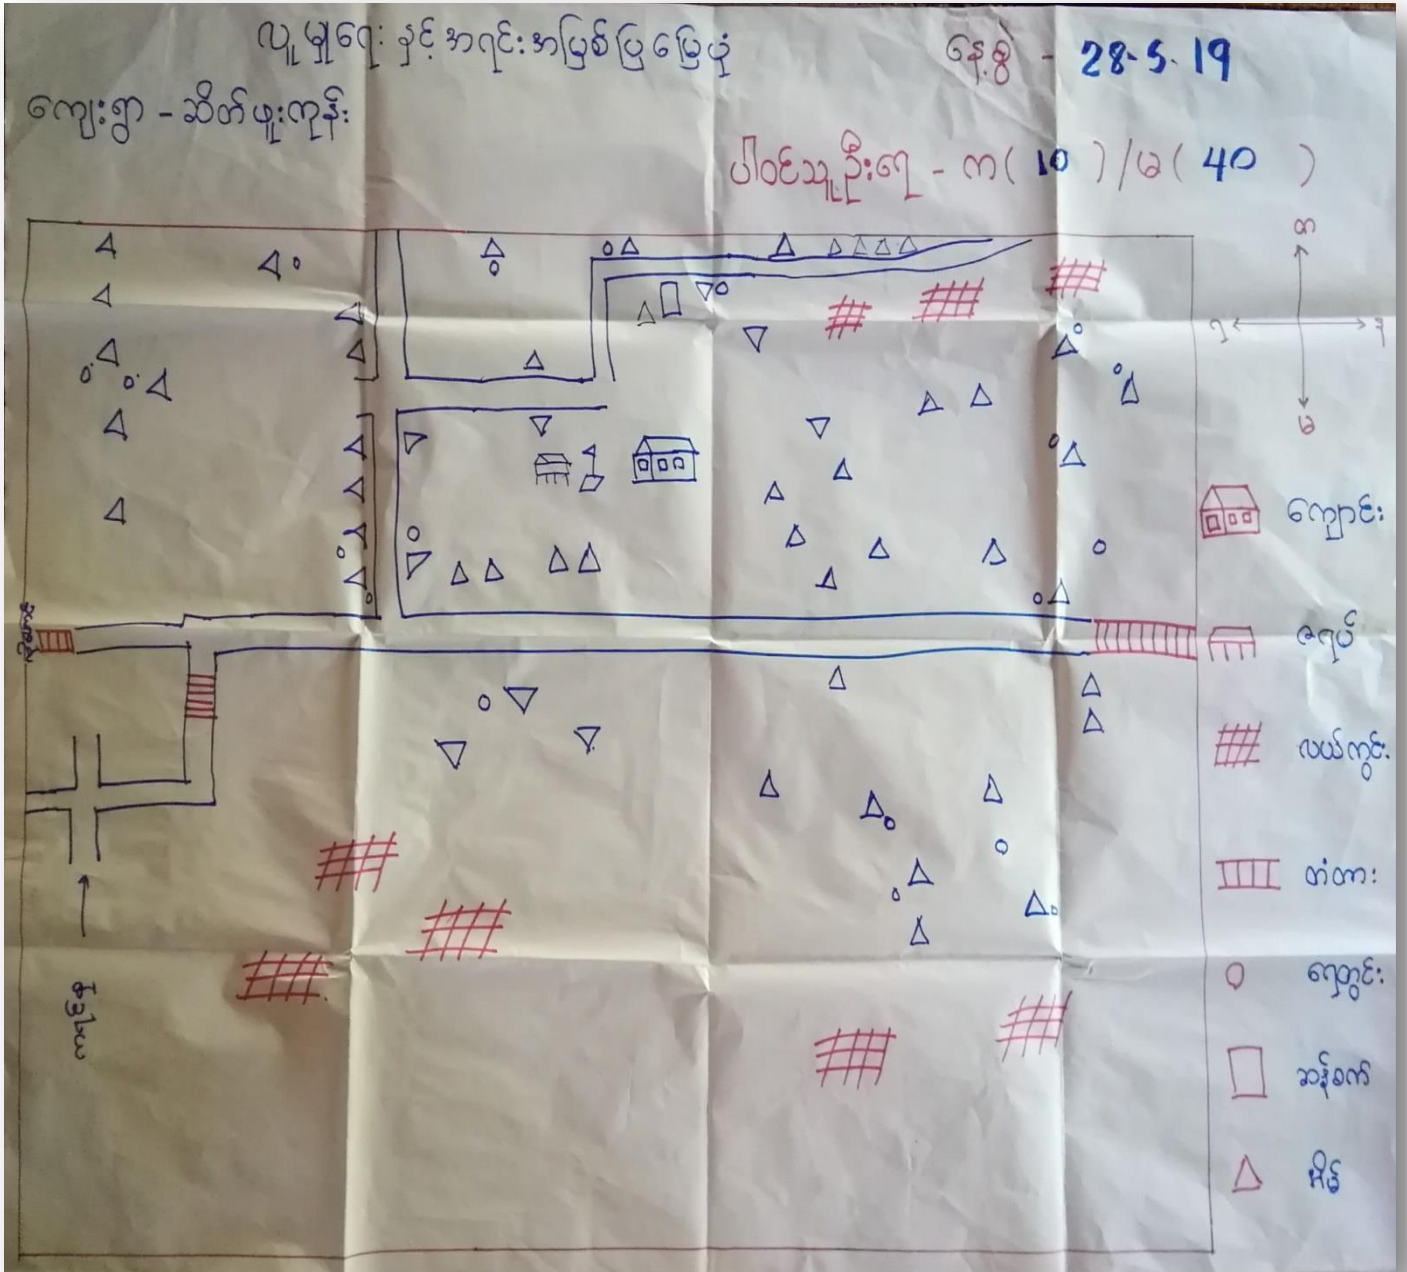 လူမှုရေးနှင့်အရင်းအမြစ်ပြမြေပုံ
နေ့စွဲ - 28.5.19
ကျေးရွာ - ဆိတ်ဖူးကုန်း
ပါဝင်သူဦးရေ - က( 10 )/မ( 40 )
ကျောင်း
ဇရပ်
လယ်ကွင်း
တံတား
ရေတွင်း
ဆန်စက်
အိမ်